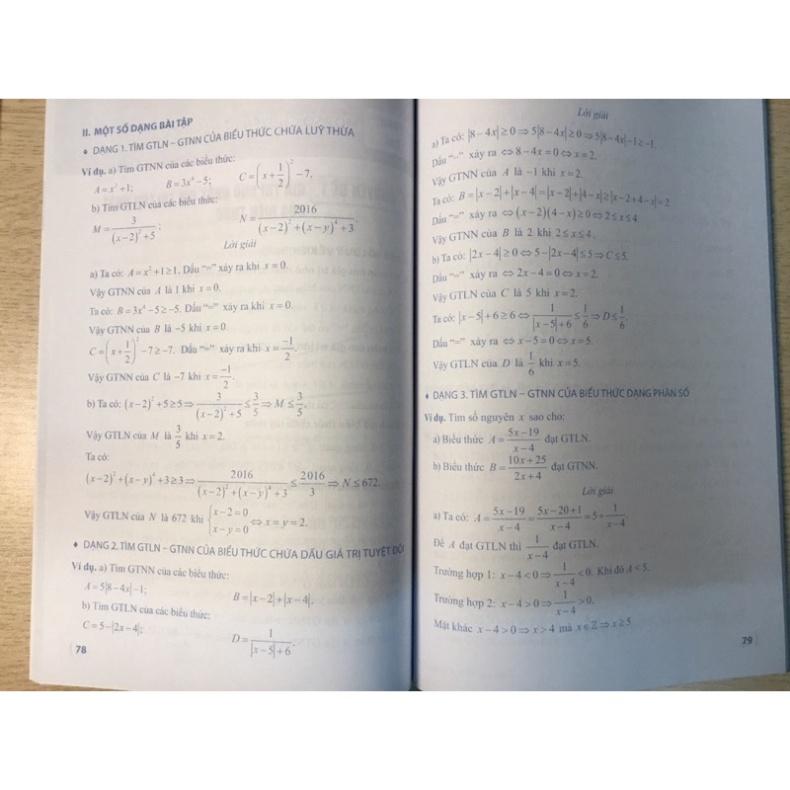 II. MỘT SỐ DẠNG BÀI TẬP
♦ DẠNG 1. TÌM GTLN – GTNN CỦA BIỂU THỨC CHỨA LUỸ THỪA
Ví dụ. a) Tìm GTNN của các biểu thức:
A = x² + 1; B = 3x⁴ – 5; C = (x + 1/2)² – 7.
b) Tìm GTLN của các biểu thức:
M = 3/((x–2)² + 5); N = 2016/((x–2)² + (x–y)⁴ + 3).
Lời giải
a) Ta có: A = x² + 1 ≥ 1. Dấu "=" xảy ra khi x = 0.
Vậy GTNN của A là 1 khi x = 0.
Ta có: B = 3x⁴ – 5 ≥ –5. Dấu "=" xảy ra khi x = 0.
Vậy GTNN của B là –5 khi x = 0.
C = (x + 1/2)² – 7 ≥ –7. Dấu "=" xảy ra khi x = –1/2.
Vậy GTNN của C là –7 khi x = –1/2.
b) Ta có: (x–2)² + 5 ≥ 5 ⇒ 3/((x–2)² + 5) ≤ 3/5 ⇒ M ≤ 3/5.
Vậy GTLN của M là 3/5 khi x = 2.
Ta có:
(x–2)² + (x–y)⁴ + 3 ≥ 3 ⇒ 2016/((x–2)² + (x–y)⁴ + 3) ≤ 2016/3 ⇒ N ≤ 672.
Vậy GTLN của N là 672 khi {x–2=0, x–y=0 ⇔ x = y = 2.
♦ DẠNG 2. TÌM GTLN – GTNN CỦA BIỂU THỨC CHỨA DẤU GIÁ TRỊ TUYỆT ĐỐI
Ví dụ. a) Tìm GTNN của các biểu thức:
A = 5|8–4x|–1; B = |x–2|+|x–4|.
b) Tìm GTLN của các biểu thức:
C = 5–|2x–4|; D = 1/(|x–5|+6).
78
Lời giải
a) Ta có: |8–4x| ≥ 0 ⇒ 5|8–4x| ≥ 0 ⇒ 5|8–4x|–1 ≥ –1.
Dấu "=" xảy ra ⇔ 8–4x = 0 ⇔ x = 2.
Vậy GTNN của A là –1 khi x = 2.
Ta có: B = |x–2|+|x–4| = |x–2|+|4–x| ≥ |x–2+4–x| = 2
Dấu "=" xảy ra ⇔ (x–2)(4–x) ≥ 0 ⇔ 2 ≤ x ≤ 4.
Vậy GTNN của B là 2 khi 2 ≤ x ≤ 4.
b) Ta có: |2x–4| ≥ 0 ⇔ 5–|2x–4| ≤ 5 ⇔ C ≤ 5.
Dấu "=" xảy ra ⇔ 2x–4 = 0 ⇔ x = 2.
Vậy GTLN của C là 5 khi x = 2.
Ta có: |x–5|+6 ≥ 6 ⇔ 1/(|x–5|+6) ≤ 1/6 ⇒ D ≤ 1/6.
Dấu "=" xảy ra ⇔ x–5 = 0 ⇔ x = 5.
Vậy GTLN của D là 1/6 khi x = 5.
♦ DẠNG 3. TÌM GTLN – GTNN CỦA BIỂU THỨC DẠNG PHÂN SỐ
Ví dụ. Tìm số nguyên x sao cho:
a) Biểu thức A = (5x–19)/(x–4) đạt GTLN.
b) Biểu thức B = (10x+25)/(2x+4) đạt GTNN.
Lời giải
a) Ta có: A = (5x–19)/(x–4) = (5x–20+1)/(x–4) = 5 + 1/(x–4).
Để A đạt GTLN thì 1/(x–4) đạt GTLN.
Trường hợp 1: x–4 < 0 ⇒ 1/(x–4) < 0. Khi đó A < 5.
Trường hợp 2: x–4 > 0 ⇒ 1/(x–4) > 0.
Mặt khác x–4 > 0 ⇒ x > 4 mà x ∈ Z ⇒ x ≥ 5
79